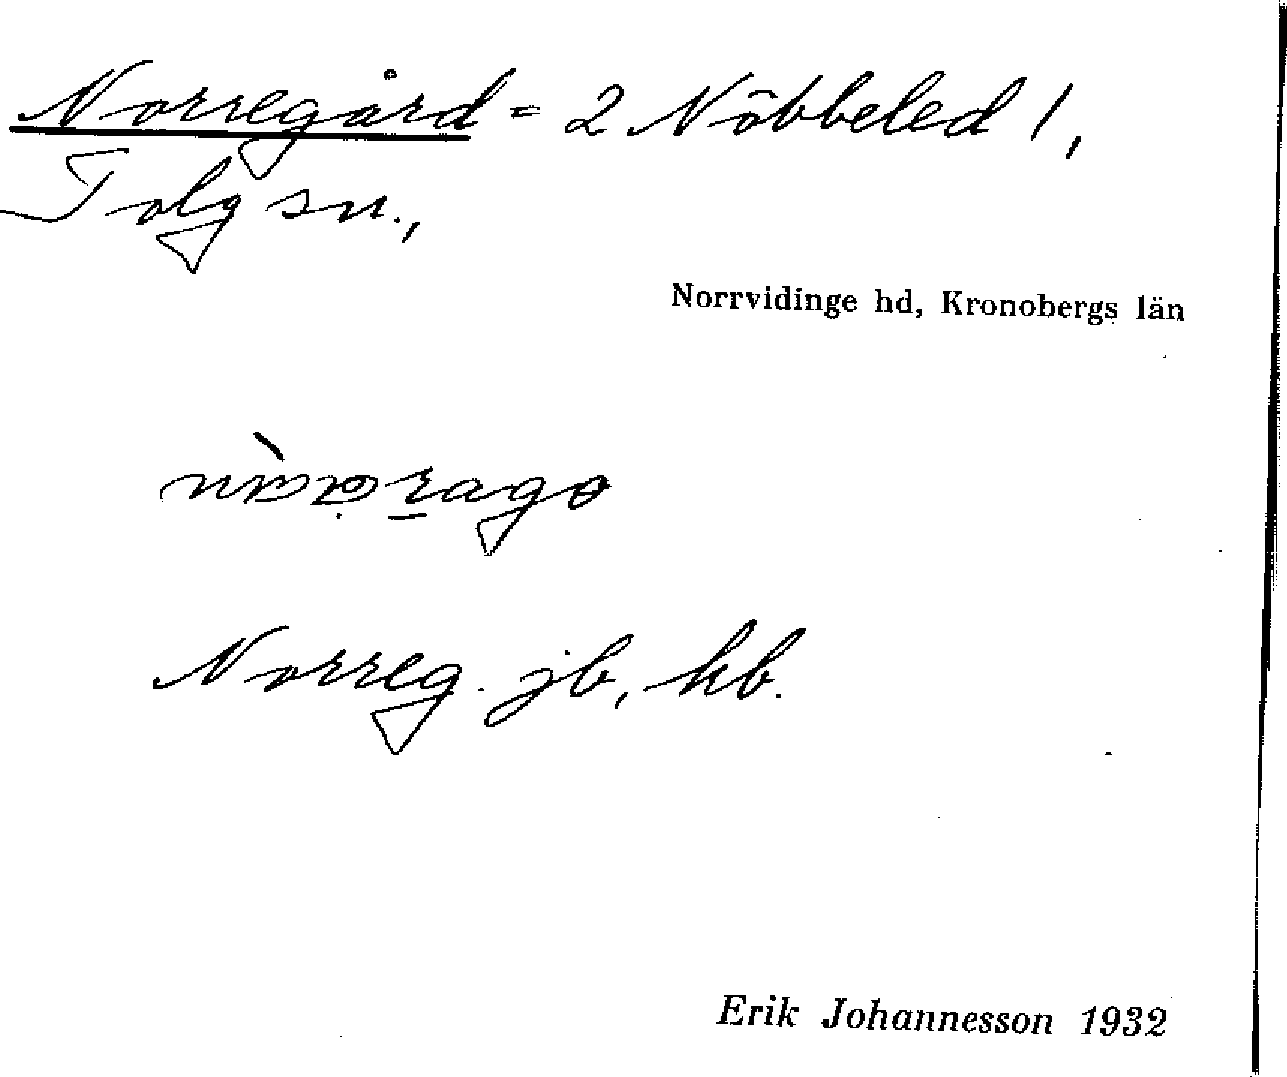 Norregård = 2 Nöbbeled 1,
Tolg sn.,
Norrvidinge hd, Kronobergs län
Norreg. jb, hb.
Erik Johannesson 1932